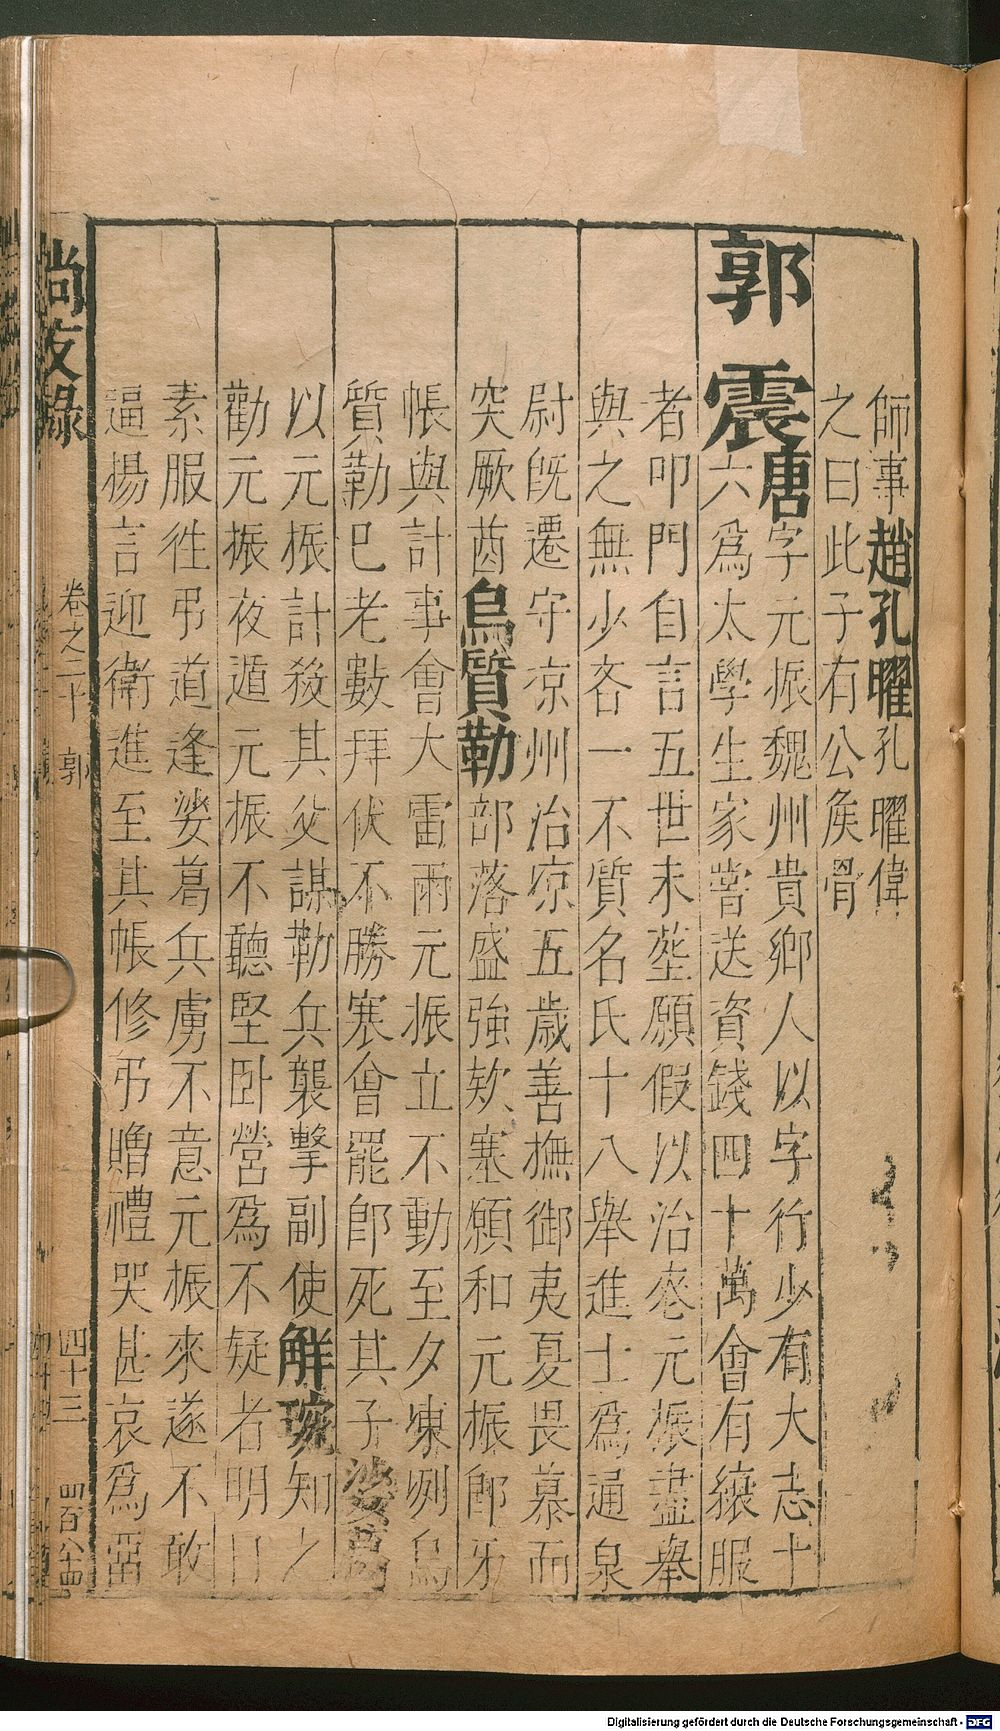 師事趙孔曜孔曜偉
之曰此子有公矦骨
郭震唐字元振魏州貴鄉人以字行少有大志十
六爲太學生家嘗送資錢四十萬會有縗服
者叩門自言五世未塟願假以治喪元振盡舉
與之無少吝一不質名氏十八舉進士爲通泉
尉旣遷守凉州治凉五歲善撫御夷夏畏慕而
突厥酋烏質勒部落盛強欵塞願和元振郎牙
帳與計事會大雷雨元振立不動至夕凍冽烏
質勒巳老數拜伏不勝寒會罷郎死其子娑葛
以元振計殺其父謀勒兵襲擊副使解琬知之
勸元振夜遁元振不聽堅卧營爲不疑者明日
素服徃弔道逢娑葛兵虜不意元振來遂不敢
逼揚言迎衛進至其帳修弔贈禮哭甚哀爲畱
尚友錄
卷之二十 郭
四十三
四百八十四
Digitalisierung gefördert durch die Deutsche Forschungsgemeinschaft - DFG